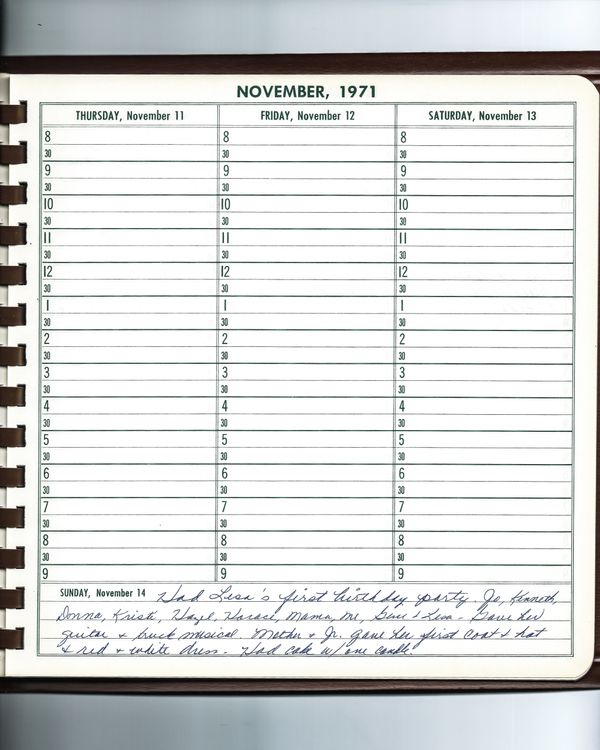 NOVEMBER, 1971
THURSDAY, November 11
8
30
9
30
10
30
11
30
12
30
1
30
2
30
3
30
4
30
5
30
6
30
7
30
8
30
9
FRIDAY, November 12
8
30
9
30
10
30
11
30
12
30
1
30
2
30
3
30
4
30
5
30
6
30
7
30
8
30
9
SATURDAY, November 13
8
30
9
30
10
30
11
30
12
30
1
30
2
30
3
30
4
30
5
30
6
30
7
30
8
30
9
SUNDAY, November 14 Had Lisa's first birthday party. Jo, Kenneth,
Donna, Kriste, Hazel, Horace, Mama, me, & Lisa - Gave her
guitar & truck musical. Mother & Jr. gave her first coat & hat
& red & white dress. Had cake w/ one candle.